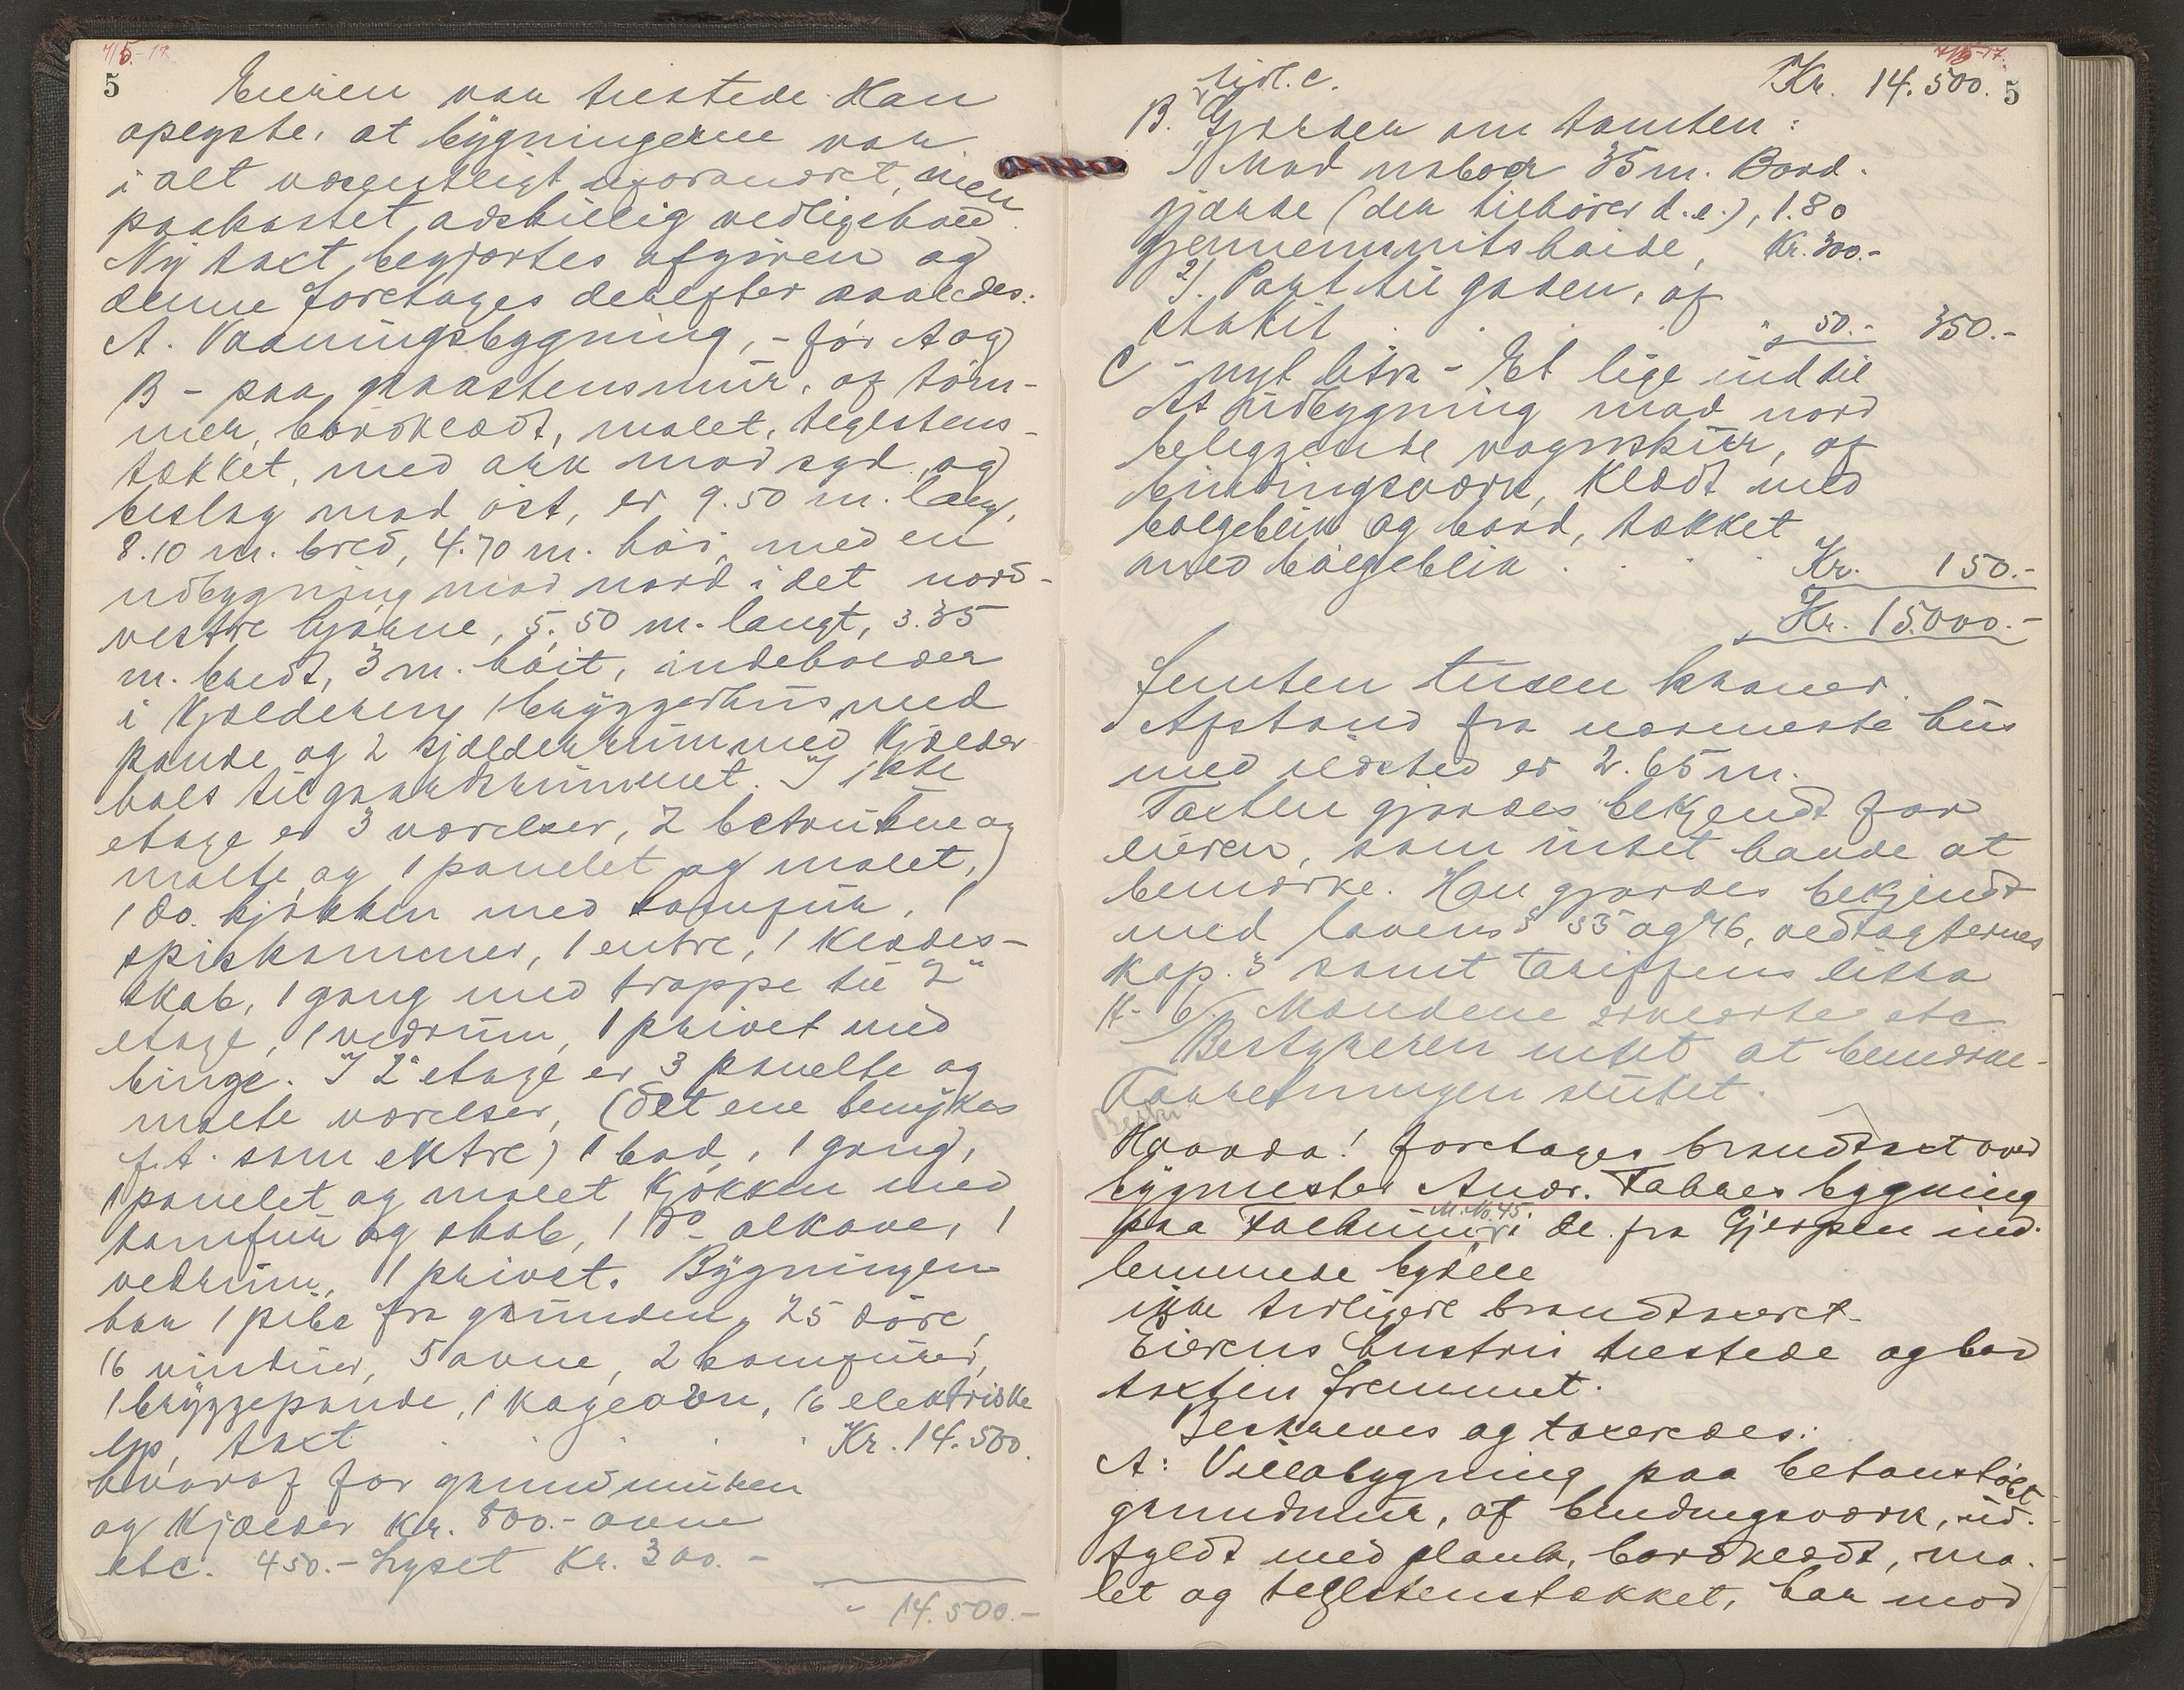 7/5-17.
5
Eieren var tilstede. Han
oplyste, at bygningerne var
i alt væsentligt uforandret, men
paakostet adskillig vedligehold.
Ny taxt begjærtes afgiven og
denne foretages derefter saaledes:
A. Vaaningsbygning, - før A og
B - paa graastensmur, af tøm-
mer, bordklædt, malet, teglstens-
tækket, med ark mod syd, og
bislag mod øst, er 9.50 m. lang,
8.10 m. bred, 4.70 m. høi, med en
udbygning mod nord i det nord-
vestre hjørne, 5.50 m. langt, 3.35
m. bredt, 3 m. høit, indeholder
i kjælderen 1 bryggerhus med
pande og 2 kjælderrum med kjælder
hals til gaardsrummet. I 1ste
etage er 3 værelser, 2 betrukne og
malte og 1 panelet og malet,
1 do. kjøkken med komfur, 1
spiskammer, 1 entre, 1 klædes-
skab, 1 gang med trappe til 2"
etage, 1 vedrum, 1 privet med
binge. I 2" etage er 3 panelte og
malte værelser, (det ene benyttes
f.t. som entre) 1 bad, 1 gang,
1 panelet og malet kjøkken med
komfur og skab, 1 do alkove, 1
vedrum, 1 privet. Bygningen
har 1 pibe fra grunden, 25 døre,
16 vinduer, 5 ovne, 2 komfurer,
1 bryggepande, 1 kageovn, 16 elektriske
lys, taxt . . . . Kr. 14.500.
hvoraf for grundmuren
og kjælder Kr. 800.- ovne
etc. 450.- Lyset Kr. 300.-
- 14.500.-
7/5-17.
Kr. 14.500. 5
tidl. C.
B. Gjærder om tomten:
1) Mod naboer 35 m. Bord-
gjærde (der tilhører d.e.), 1.80
gjennemsnitshøide, Kr. 300.-
2). Port til gaden, af
stakit . . . . " 50.- 350.-
C - nyt litra - Et lige ind til
A's udbygning mod nord
beliggende vognskur, af
bindingsværk, klædt med
bølgeblik og bord, tækket
med bølgeblik . . . . Kr. 150.-
Kr. 15000.-
Femten tusen kroner.
Afstand fra nærmeste hus
med ildsted er 2.65 m.
Taxten gjordes bekjendt for
eieren, som intet havde at
bemærke. Han gjordes bekjendt
med lovens § 35 og 46, vedtægternes
kap. 3 samt tariffens litra
H- 6. Mændene erklærte etc
Bestyreren intet at bemærke-
Forretningen sluttet.
Beskr
Haanda! foretages brandtaxt over
bygmester Andr. Tabnes bygning
M.No. 45.
paa Falkum, i de fra Gjerpen ind-
lemmede bydele
ikke tidligere brandtaxeret-
Eierens hustru tilstede og bad
taxten fremmet.
Beskreves og taxeredes:
A: Villabygning paa betonstøbt
grundmur, af bindingsværk, ud-
fyldt med plank, bordklædt, ma-
let og teglstenstækket, har mod